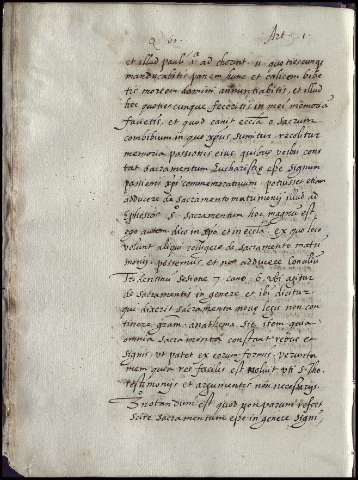 Q. 60. Art. 1.
et illud pauli 1ª ad chorint. 11. quotiescunq
manducabitis panem hunc et calicem bibe
tis mortem domini annuntiabitis, et illud
hoc quotiescunque feceritis in mei memoria
facietis, et quod canit eccla o sacrum
convivium in quo xpus sumitur recolitur
memoria passionis eius, quibus verbis cons
tat sacramentum Eucharistiæ esse signum
passionis xpi commemorativum potuisset etiam
adducere de sacramento matrimonij illud ad
Ephesios 5. sacramentum hoc magnu est
ego autem dico in xpo et in eccla. ex quo loco
volunt aliqui colligere de sacramento matri
monij, possemus, et nos adducere Conciliu
Tridentinu sesione 7. cano. 6. ubi agitur
de sacramentis in genere et ibi dicitur
qui dixerit sacramenta novæ legis non con
tinere gratiam anathema sit, item quia
omnia sacramenta constant rebus et
signis, ut patet ex eorum formis, verunta
men quia res facilis est noluit uti s. tho.
testimonijs et argumentis non necessarijs.
notandum est quod non parum refert
scire sacramentum esse in genere signi